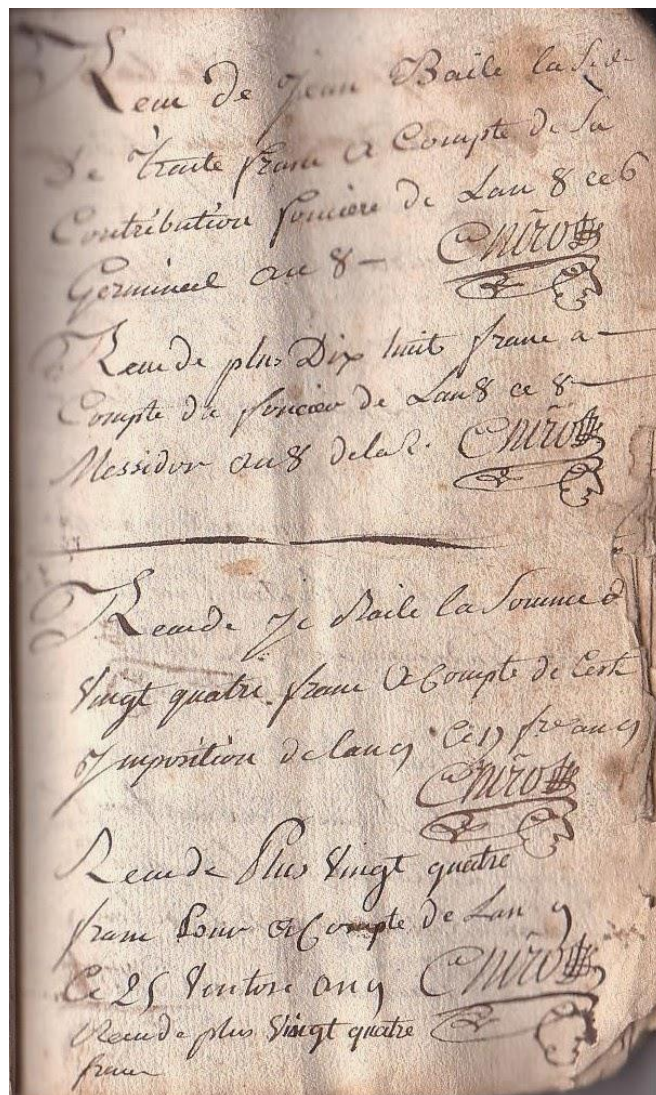 Recu De Jean Baile la So de
De trante franc a Compte de la
Contribution fonciere de Lan 8 ce 6
Germineel an 8 -
Recu de plus Dix huit franc a -
Compte du foncier de Lan 8 ce 8 -
Messidor an 8 de la R.
Recu de Je Baile la Somme d
Vingt quatre franc a Compte de
Imposition de lan 9 Ce an 9
Recu de Plus Vingt quatre
franc Pour a Compte de Lan 9
Ce 25 Ventose an 9
Recu de plus Vingt quatre
franc